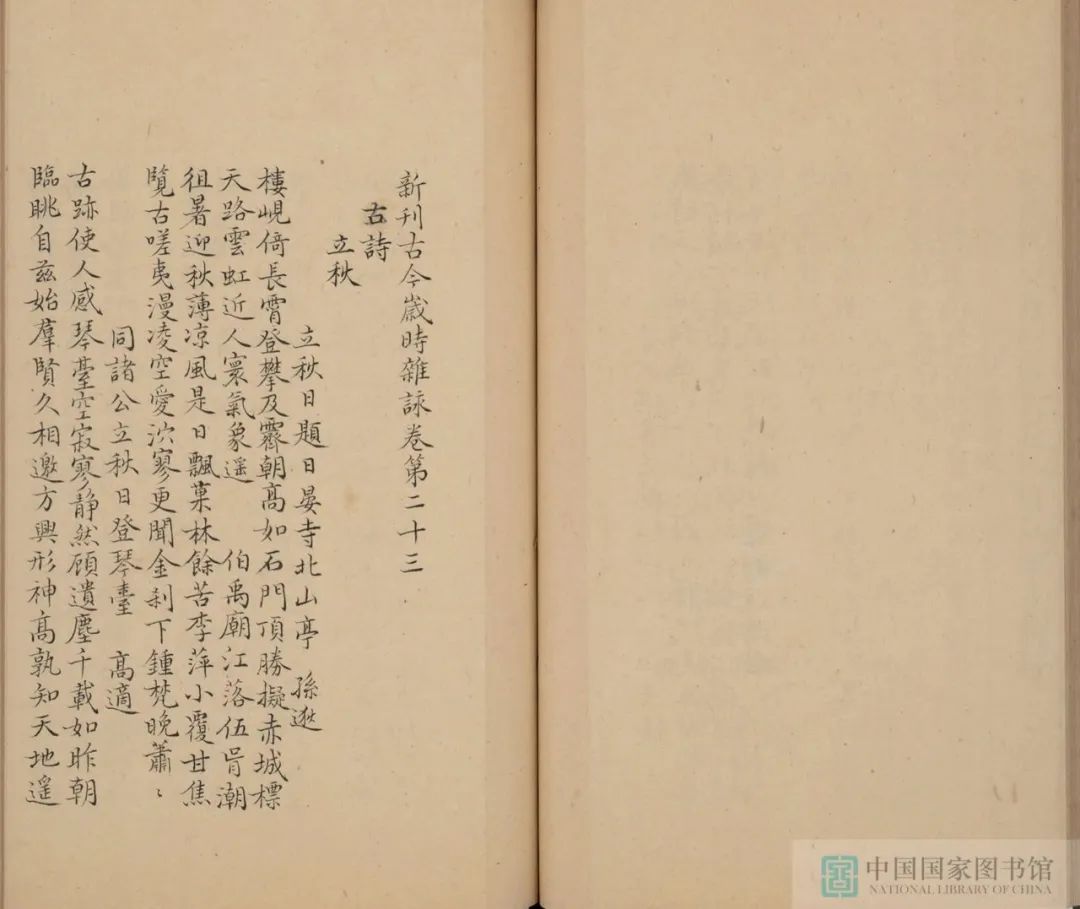 新刊古今歲時雜詠卷第二十三
古詩
立秋
立秋日題日晏寺北山亭 孫逖
樓峴倚長霄登攀及霽朝髙如石門頂勝擬赤城標
天路雲虹近人寰氣象遥 伯禹廟江落伍胥潮
徂暑迎秋薄凉風是日飄菓林餘苦李萍小覆甘焦
覽古嗟夷漫凌空愛泬寥更聞金刹下鍾梵晚蕭〻
同諸公立秋日登琴臺 髙適
古跡使人感琴臺空寂寥静然顧遺塵千載如昨朝
臨眺自兹始羣賢久相邀方興形神髙孰知天地遥
中国国家图书馆
NATIONAL LIBRARY OF CHINA